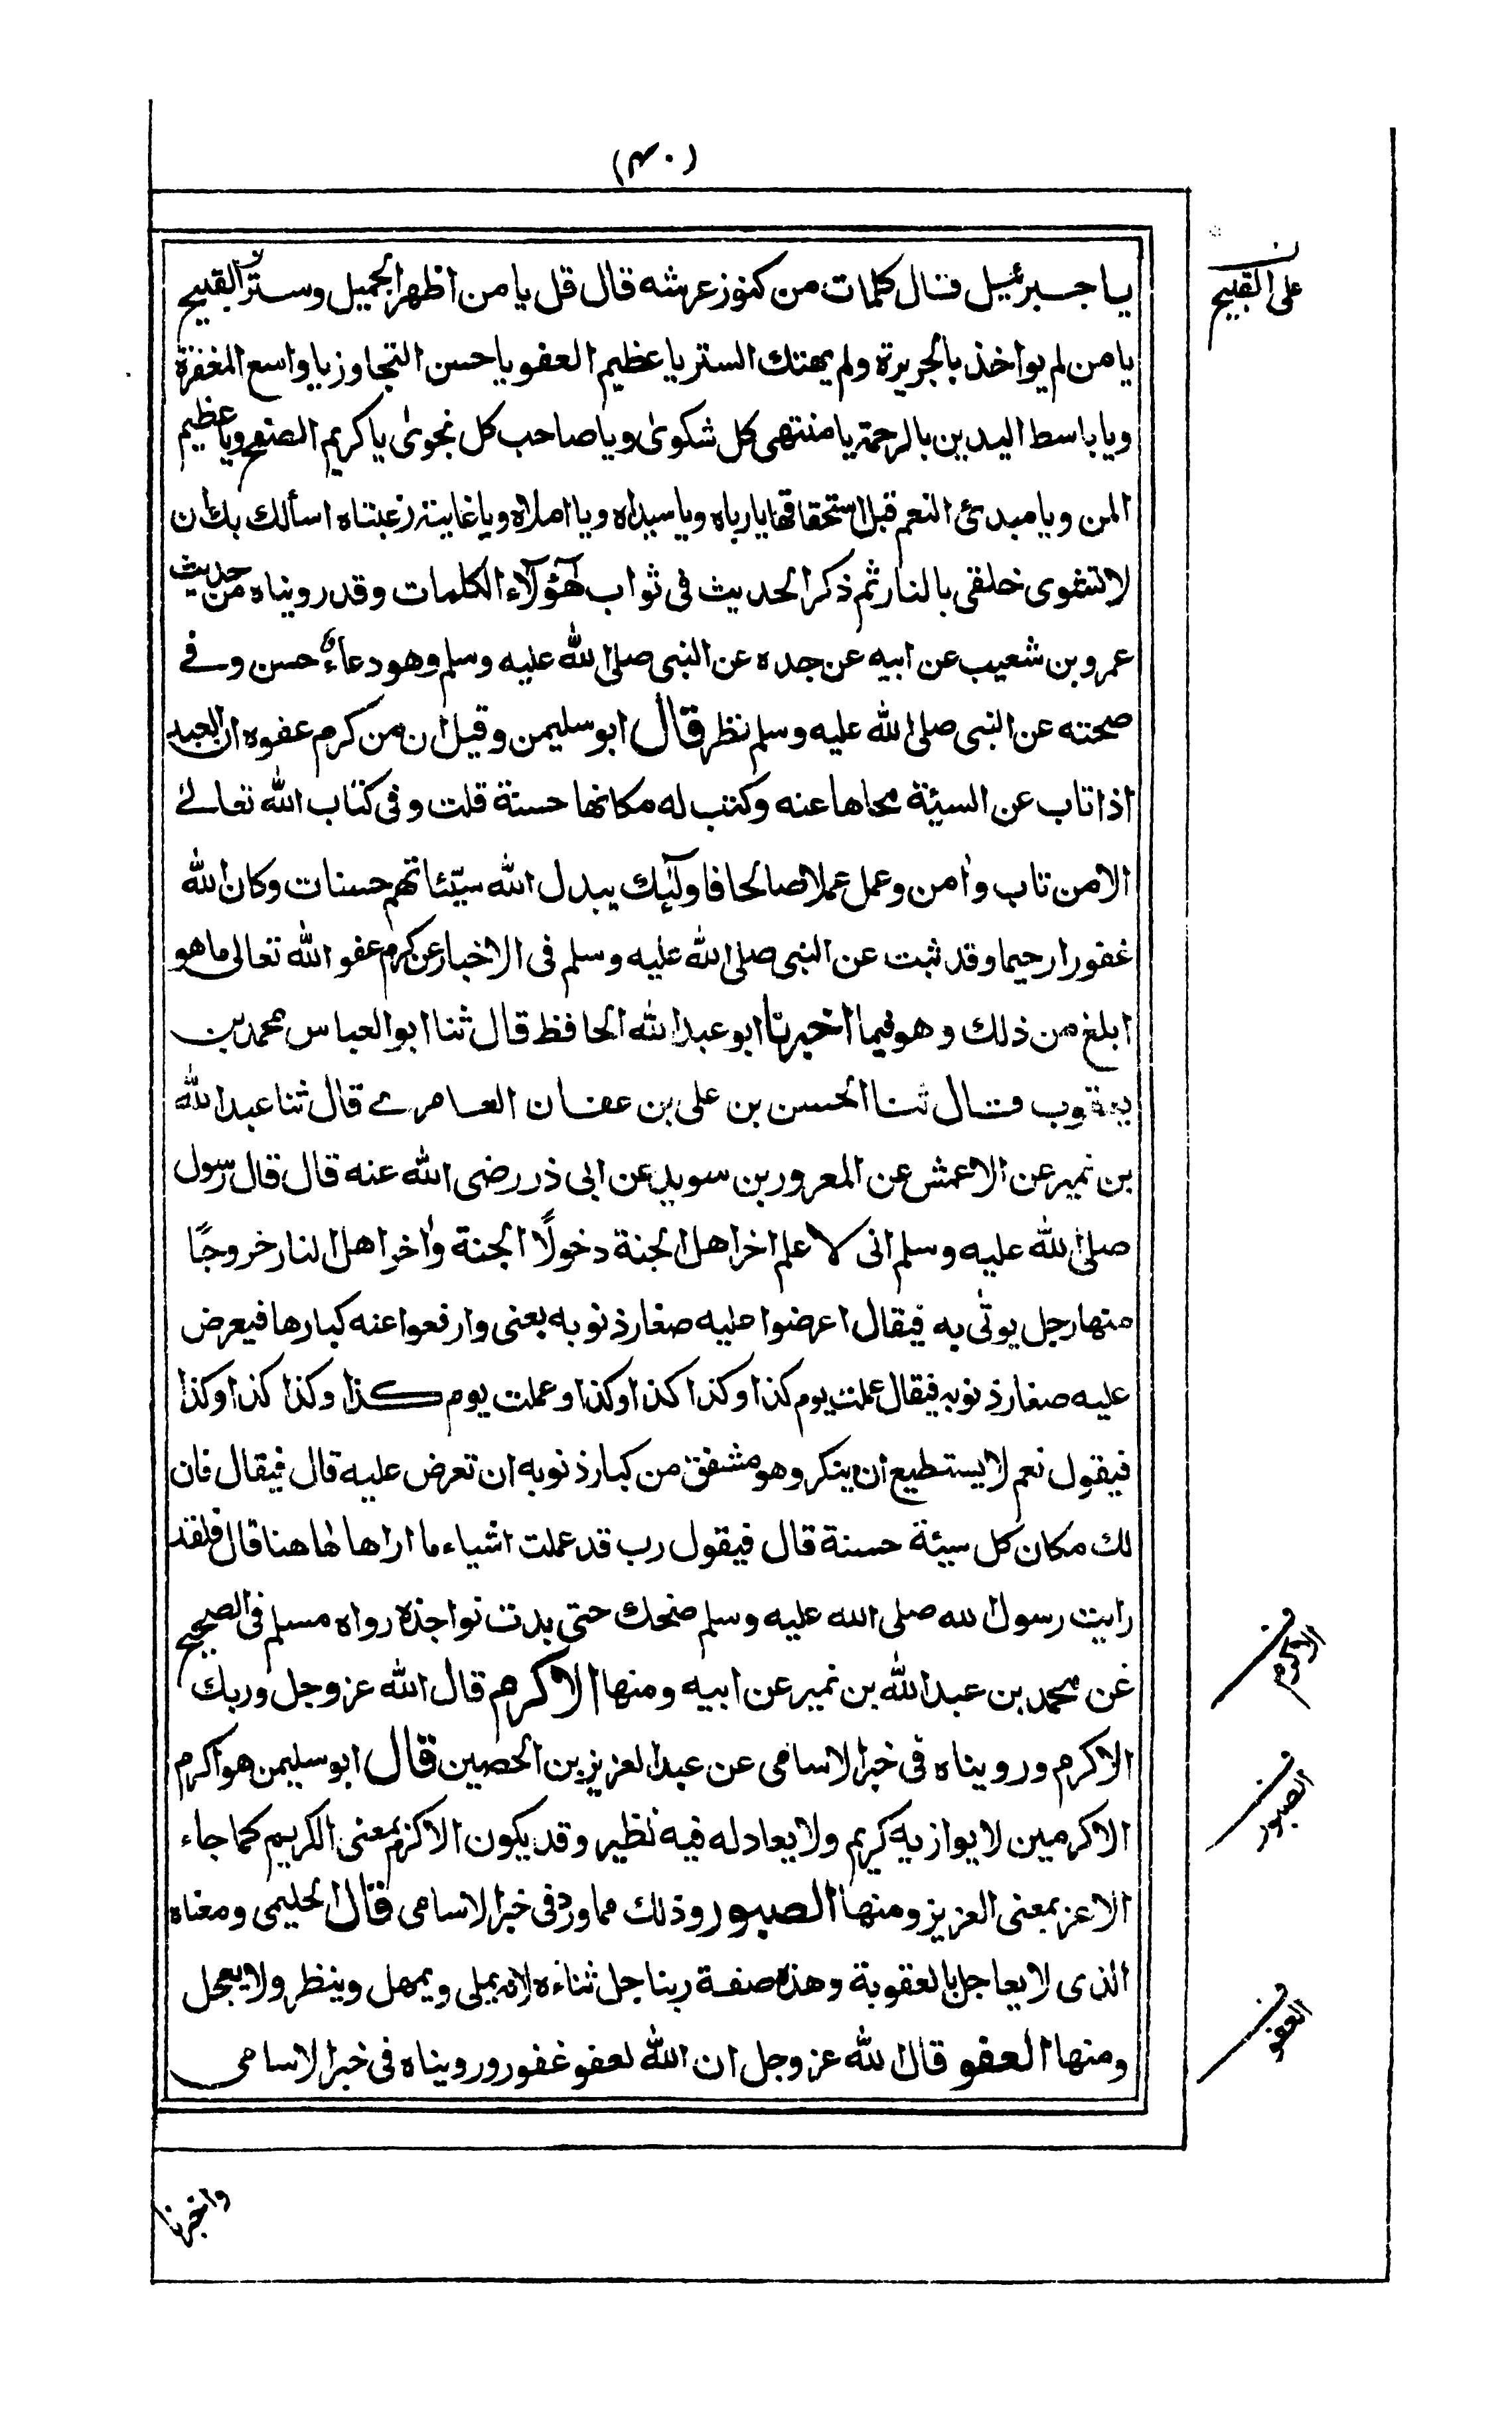 (۴۰)
يا جبرئيل قال كلمات من كنوز عرشه قال قل يا من اظهر الجميل وستر القبيح
يا من لم يواخذ بالجريرة ولم يهتك الستر يا عظيم العفو يا حسن التجاوز يا واسع المغفرة
ويا باسط اليدين بالرحمة يا منتهى كل شكوىٰ ويا صاحب كل نجوىٰ يا كريم الصفح ويا عظيم
المن ويا مبدئ النعم قبل استحقاقها يا رباه ويا سيداه ويا املاه ويا غاية رغبتاه اسألك بك ان
لا تشوى خلقى بالنار ثم ذكر الحديث فى ثواب هٰٓؤلآء الكلمات وقد رويناه من حديث
عمرو بن شعيب عن ابيه عن جده عن النبى صلى الله عليه وسلم وهو دعاء حسن وفے
صحته عن النبى صلى الله عليه وسلم نظر قال ابو سليمن وقيل ان من كرم عفوه ان العبد
اذا تاب عن السيئة محاها عنه وكتب له مكانها حسنة قلت وفى كتاب الله تعالےٰ
الا من تاب واٰمن وعمل عملا صالحا فاولٓئك يبدل الله سيّئاتهم حسنات وكان الله
غفورا رحيما وقد ثبت عن النبى صلى الله عليه وسلم فى الاخبار عن كرم عفو الله تعالى ما هو
ابلغ من ذلك وهو فيما اخبرنا ابو عبد الله الحافظ قال ثنا ابو العباس محمد بن
يعقوب قال ثنا الحسن بن على بن عفان العامرے قال ثنا عبد الله
بن نمير عن الاعمش عن المعرور بن سويد عن ابى ذر رضى الله عنه قال قال رسول
صلى الله عليه وسلم انى لا علم اخر اهل الجنة دخولًا الجنة واٰخر اهل النار خروجًا
منها رجل يوتٰى به فيقال اعرضوا عليه صغار ذنوبه يعنى وارفعوا عنه كبارها فيعرض
عليه صغار ذنوبه فيقال عملت يوم كذا وكذا كذا وكذا وعملت يوم كذا وكذا كذا وكذا
فيقول نعم لا يستطيع ان ينكر وهو مشفق من كبار ذنوبه ان تعرض عليه قال فيقال فان
لك مكان كل سيئة حسنة قال فيقول رب قد عملت اشياء ما اراها هٰاهنا قال فلقد
رايت رسول لله صلى الله عليه وسلم ضحك حتى بدت نواجذه رواه مسلم فى الصحيح
عن محمد بن عبد الله بن نمير عن ابيه ومنها الاكرم قال الله عز وجل وربك
الاكرم ورويناه فى خبر الاسامى عن عبد العزيز بن الحصين قال ابو سليمن هو اكرم
الاكرمين لا يوازيه كريم ولا يعادله فيه نظير وقد يكون الاكرم بمعنى الكريم كما جاء
الاعز بمعنى العزيز ومنها الصبور وذلك مما ورد فى خبر الاسامى قال الحليمى ومعناه
الذى لا يعاجل بالعقوبة وهذه صفة ربنا جل ثناءه لانه يملى ويمهل وينظر ولا يعجل
ومنها العفو قال الله عز وجل ان الله لعفو غفور ورويناه فى خبر الاسامى
واخبرنا
ن
على القبيح
ف
الاكرم
ف
الصبور
ف
العفو